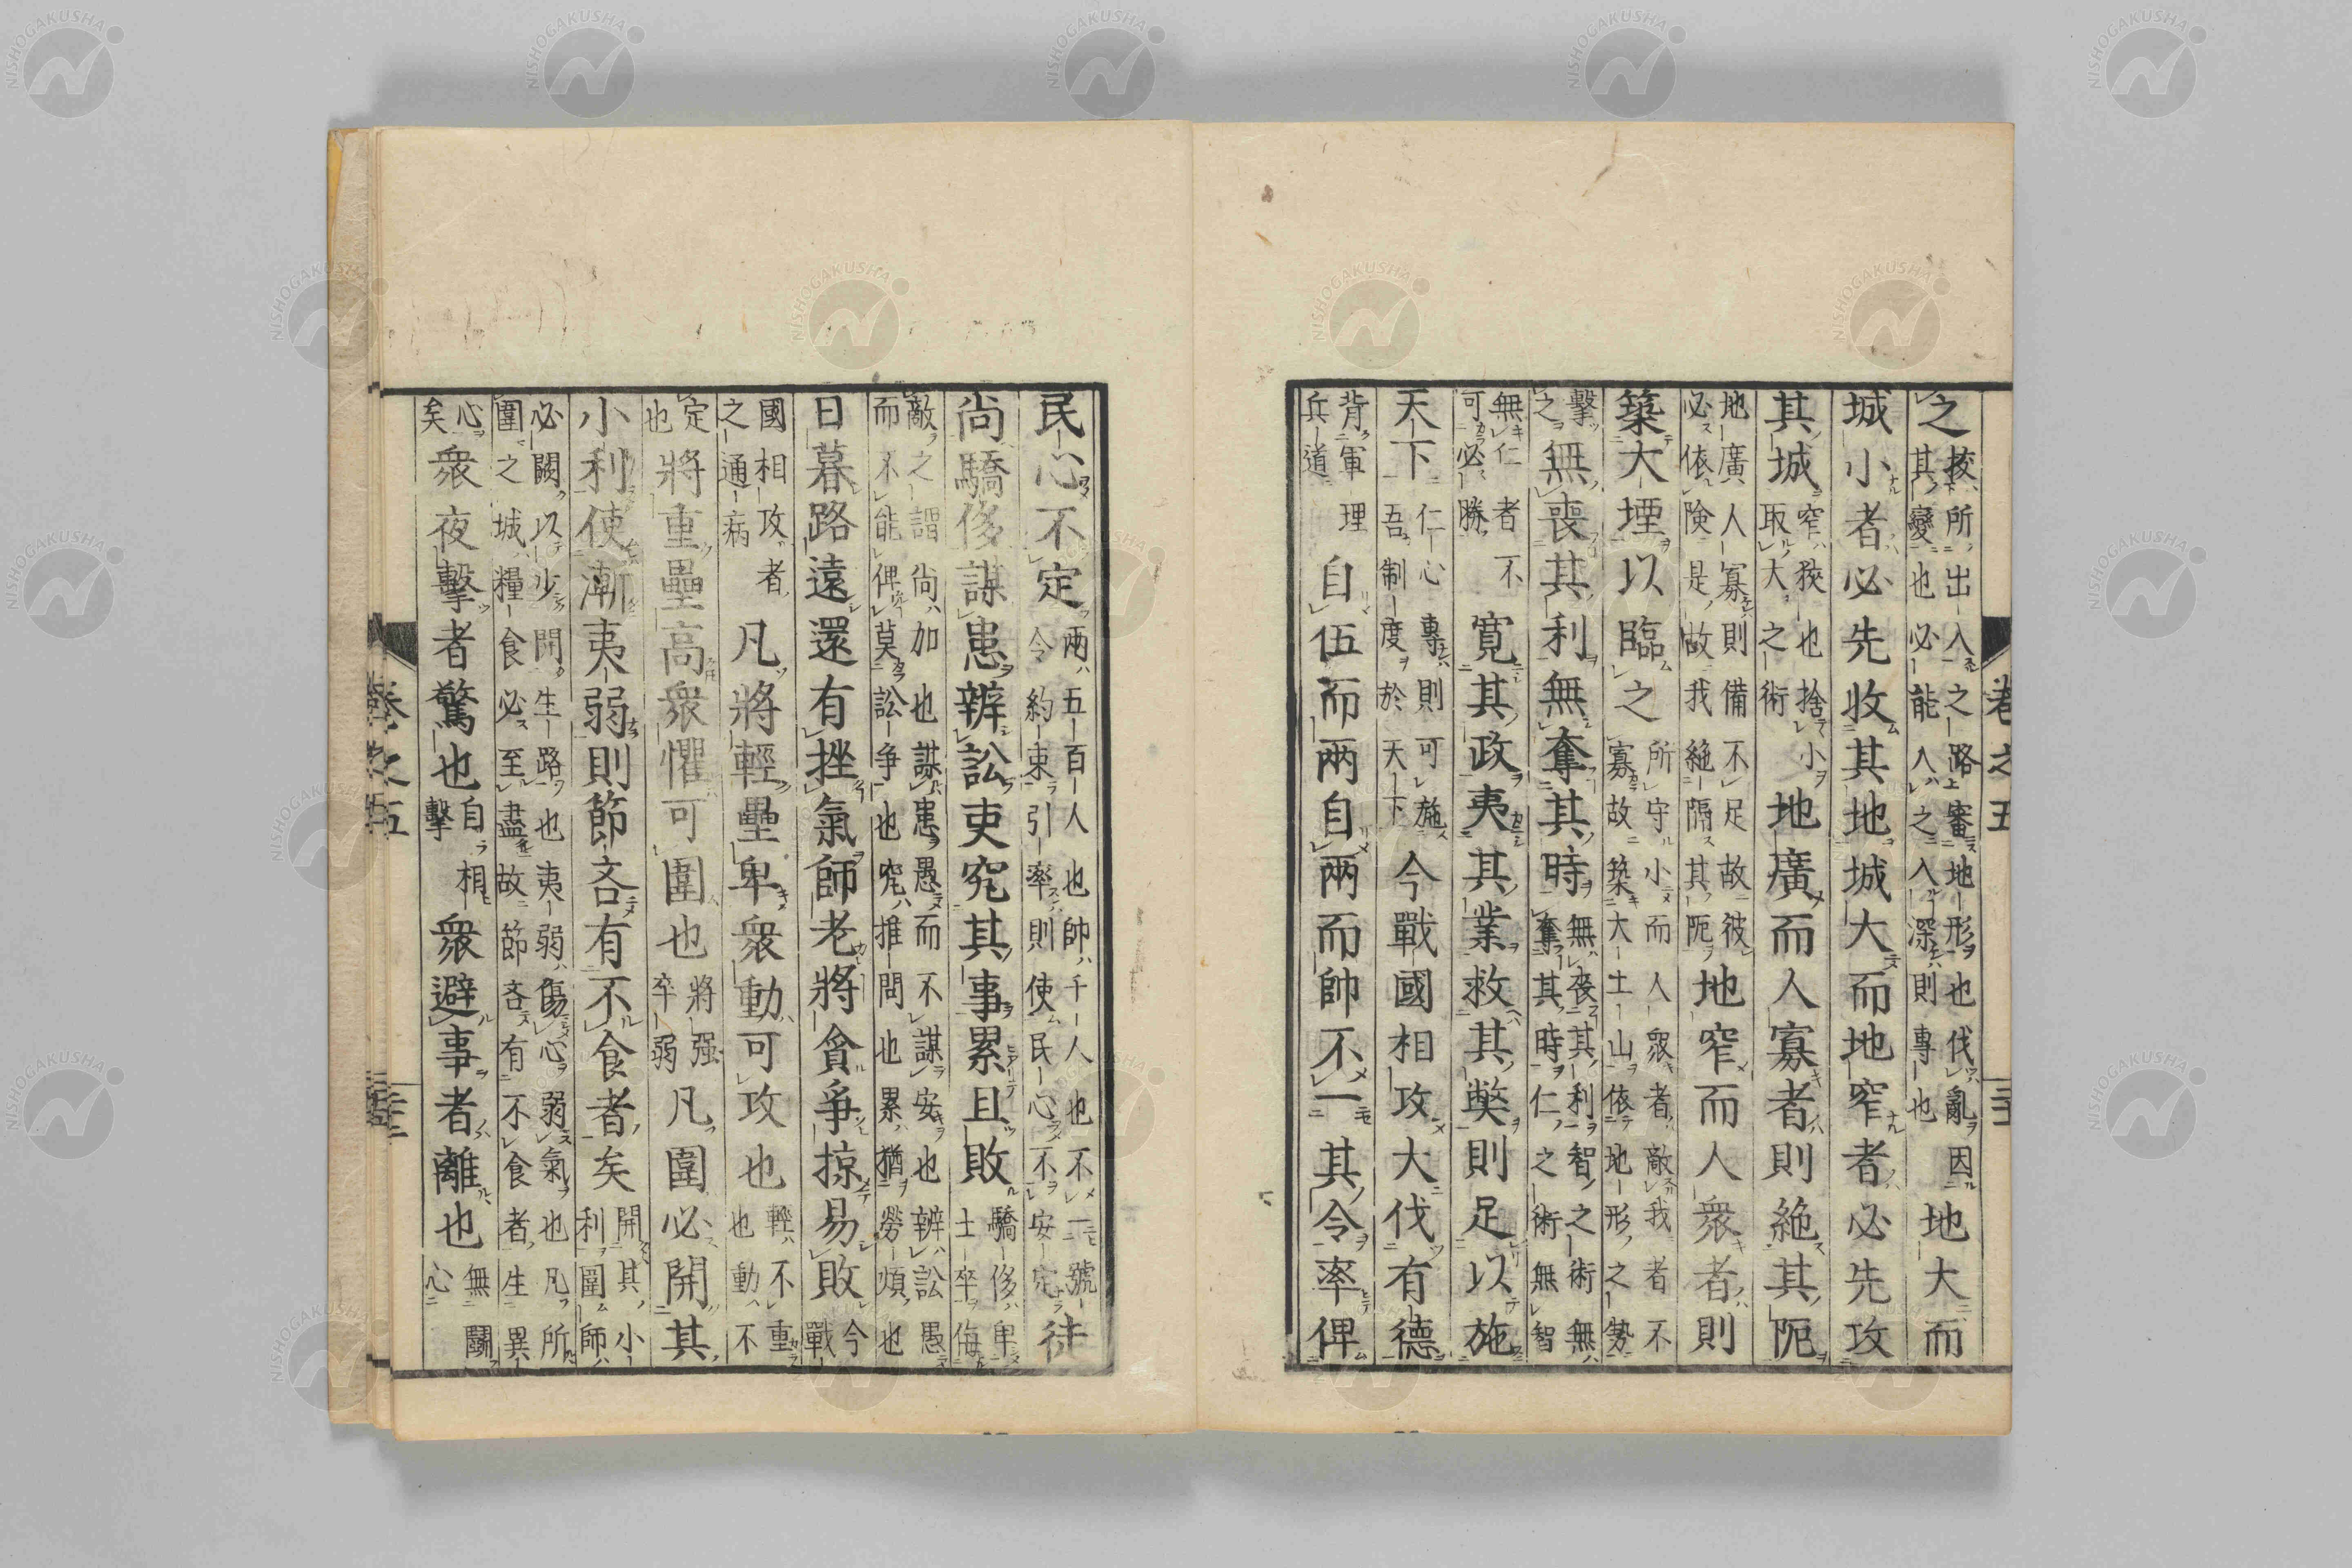 卷之五
之按所出入之路審地形也伐亂因其變也必能入之入深則專也地大而
城小者必先收其地城大而地窄者必先攻
其城窄狹也捨小取大之術地廣而人寡者則絶其阨
地廣人寡則備不足故彼必依険是故我絶隔其阨地窄而人衆者則
築大堙以臨之所守小而人衆者敵我者不寡故築大土山依地形之勢
擊之無喪其利無奪其時無喪其利智之術無奪其時仁之術無智
無仁者不可必勝寬其政夷其業救其獘則足以施
天下仁心專則可施吾制度於天下今戰國相攻大伐有德
背軍理兵道自伍而兩自兩而帥不一其令率俾
民心不定兩五百人也帥千人也不一號令約束引率則使民心不安定徒
尚驕侈謀患辨訟吏究其事累且敗驕侈卑士卒侮
敵之謂尚加也謀患愚而不謀安也辨訟愚而不能俾莫訟争也究推問也累猶勞煩也
日暮路遠還有挫氣師老將貪爭掠易敗今戰
國相攻者之通病凡將輕壘卑衆動可攻也輕不重也動不
定也將重壘高衆懼可圍也將强卒弱凡圍必開其
小利使漸夷弱則節吝有不食者矣開其小利圍師
必闕以少開生路也夷弱傷心弱氣也凡所圍之城糧食必至盡故節吝有不食者生異
心矣衆夜擊者驚也自相擊衆避事者離也無鬭心
卷之五